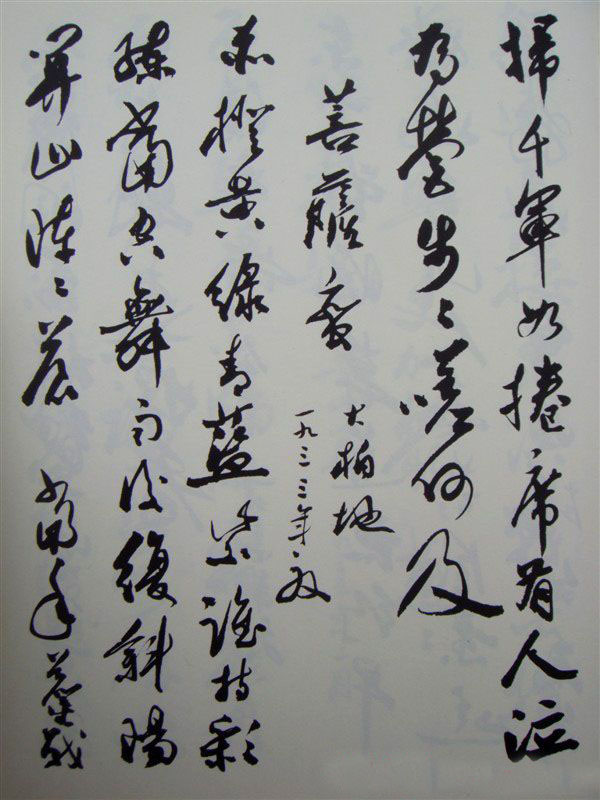 掃千軍如捲席有人泣
為營步々嗟何及
菩薩蠻
大柏地
一九三三年夏
赤橙黃綠青藍紫誰持彩
練當空舞雨後復斜陽
關山陣々蒼 當年鏖戰